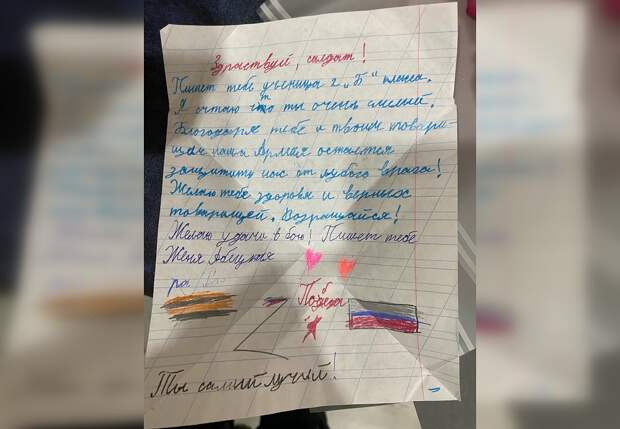 Здраствуй, солдат!
Пишет тебе ученица 2 „Б" класа.
Я счтаю что ты очень смелый.
Благодоря тебе и твоим товари-
щам наша Армия остаётся
защитить нас от любого врага!
Желаю тебе здоровя и верных
товращей. Возращайся!
Желаю удачи в бою! Пишет тебе
Женя
ра
Победа
Z
Ты самый лучий!